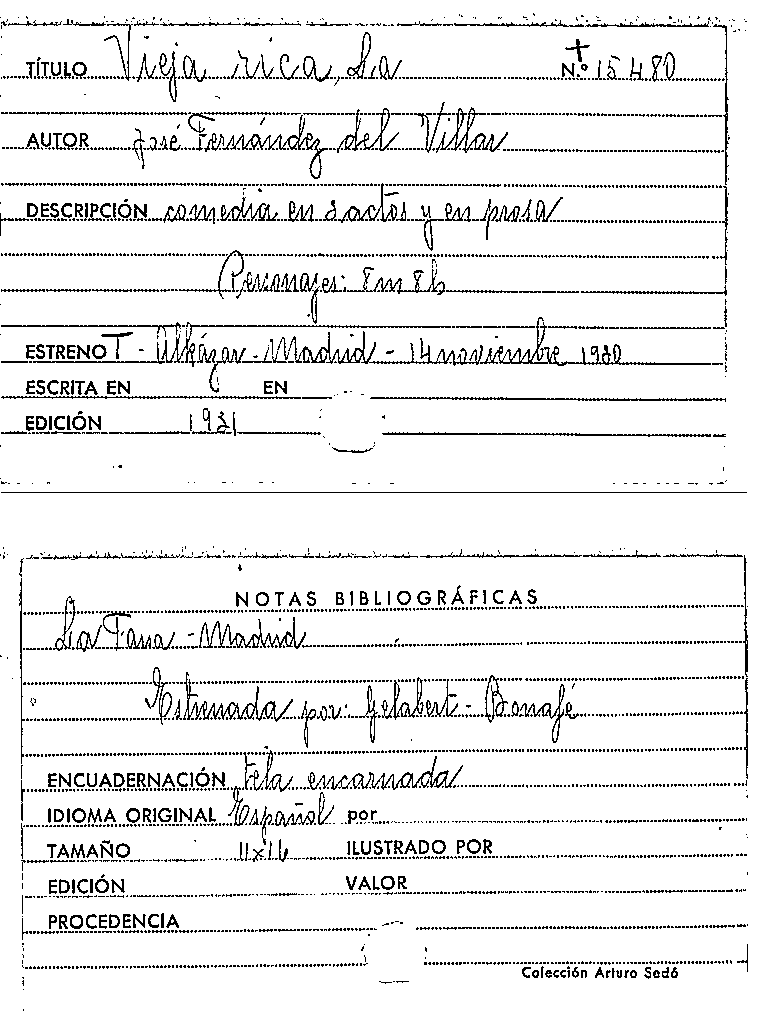 TÍTULO Vieja rica, La N.º 15480
AUTOR José Fernández del Villar
DESCRIPCIÓN comedia en 3 actos y en prosa
Personajes: 8m 8h
ESTRENO T - Alkázar - Madrid - 14 noviembre 1930
ESCRITA EN EN
EDICIÓN 1931
NOTAS BIBLIOGRÁFICAS
La Farsa - Madrid
Estrenada por: Gelabert - Bonafé
ENCUADERNACIÓN tela encarnada
IDIOMA ORIGINAL Español por
TAMAÑO 11x16 ILUSTRADO POR
EDICIÓN VALOR
PROCEDENCIA
Colección Arturo Sedó